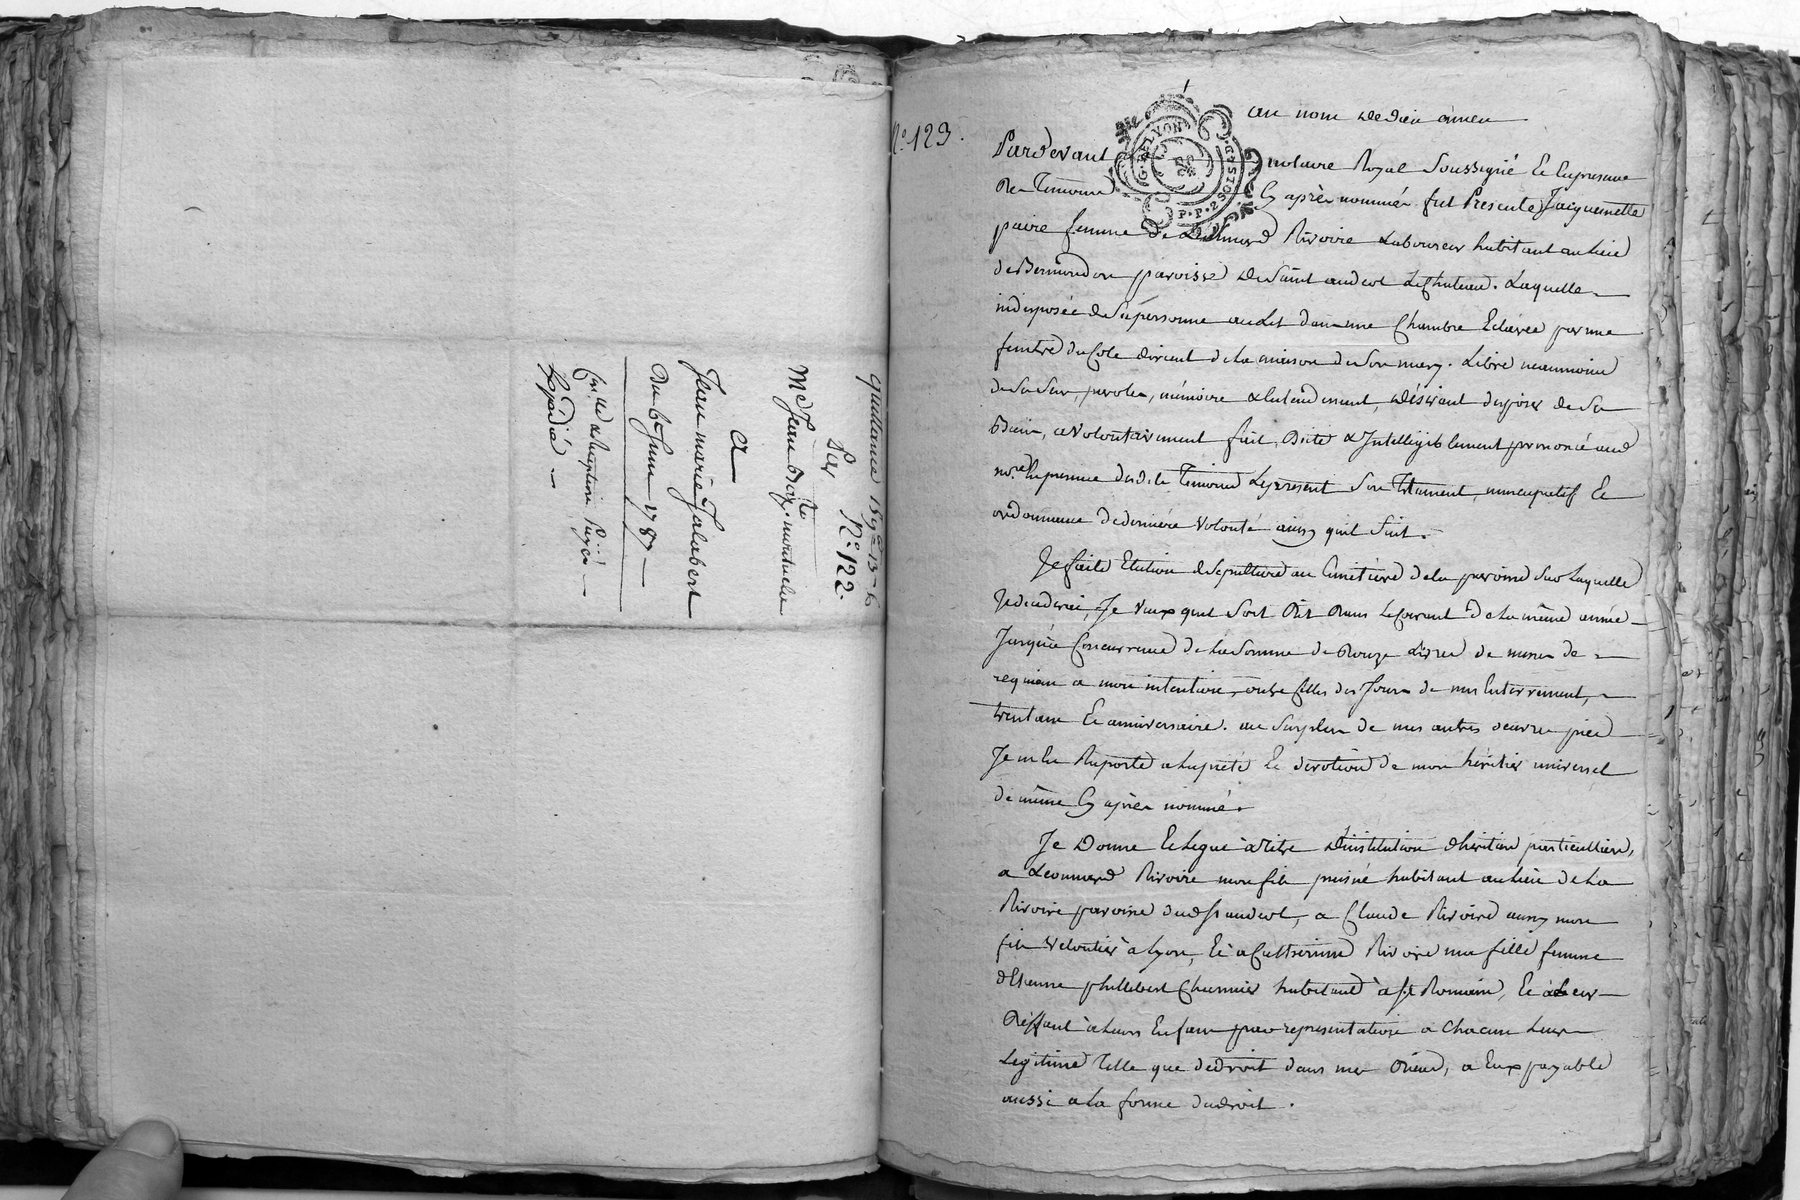 quittance 159# 13 - 6
N.° 122.
Par
Me Jean Bapte. mortuelie
a
Jean marie Jalabert
Du 6e Juin 1787
Expédié
N.° 123.
au nom de dieu amen
Pardevant notaire Royal Soussigné Et En presence
De Temoins Cy après nommés fut Presente Jacquemette
paire femme de Léonard Rivoire Laboureur habitant au Lieu
de paroisse de Saint andeol Le Chateau. Laquelle
indisposée de Sa personne au Lit dans une Chambre Eclairée par une
fenetre du Coté divient de La maison de Son mary. Libre neanmoins
de Ses Sens, parole, mémoire & Entendement, désirant disposer de Ses
Biens, a volontairement fait, Dicté & Intelligiblement prononcé aud
nore. En presence desdits Temoins Le present Son Testament nuncupatif Et
ordonnance de derniere volonté ainsy quil Suit.
Je fais Election de Sepulture au Cimetiere de la paroisse Sur Laquelle
Je decederai, Je veux quil Soit Dit Dans Le Courant de La même année
Jusqu'a Concurrence de La Somme de Douze Livres de messes de
requiem a mon intention, outre Celles des Jours de mes Enterrement,
trentain Et anniversaire. au Surplus de mes autres oeuvres pies
Je m'En Raporte a La pieté Et devotion de mon héritier universel
de même Cy après nommé.
Je Donne Et Legue à Titre D'institution d'héritiers particulliers,
a Léonnard Rivoire mon fils puisné habitant au Lieu de La
Rivoire paroisse dud St andeol, a Claude Rivoire aussy mon
fils veloutier à Lyon, Et à Catherinne Rivoire ma fille femme
d'Etienne phillibert Charmier habitand à St Romain, Et à Leur
Deffaut à Leurs Enfans par representation a Chacun Leur
Legitime Telle que de droit dans mes Biens, a Eux payable
aussi a La forme du droit.
G. DE LYON
P. P. 2 S.